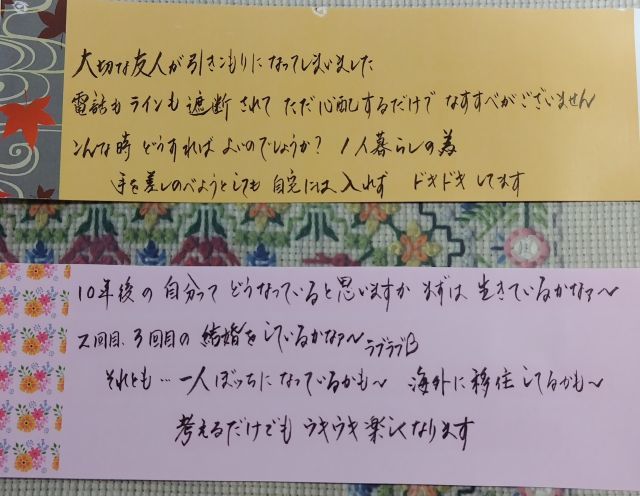 大切な友人が引きこもりになってしまいました
電話もラインも遮断されて ただ心配するだけで なすすべがございません
こんな時 どうすれば よいのでしょうか? 1人暮らしの為
手を差しのべようとしても 自宅には 入れず ドキドキしてます
10年後の自分って どうなっていると思いますか まずは 生きているかなァ〜
2回目、3回目の 結婚をしているかなァ〜 ラブラブ
それとも… 一人ぼっちになっているかも〜 海外に移住してるかも〜
考えるだけでも ウキウキ 楽しくなります